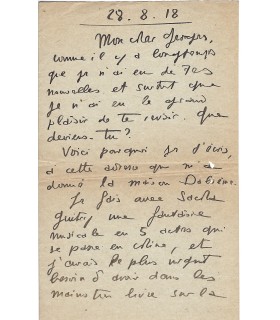 28. 8. 18
Mon cher Georges,
comme il y a longtemps
que je n'ai eu de tes
nouvelles. et surtout que
je n'ai eu le grand
plaisir de te revoir. que
deviens-tu?
Voici pourquoi je t'écris,
à cette adresse que m'a
donné la maison
Je fais avec Sacha
Guitry une fantaisie
musicale en 5 actes qui
se passe en Chine, et
j'aurais le plus urgent
besoin d'avoir dans les
mains ton livre sur la